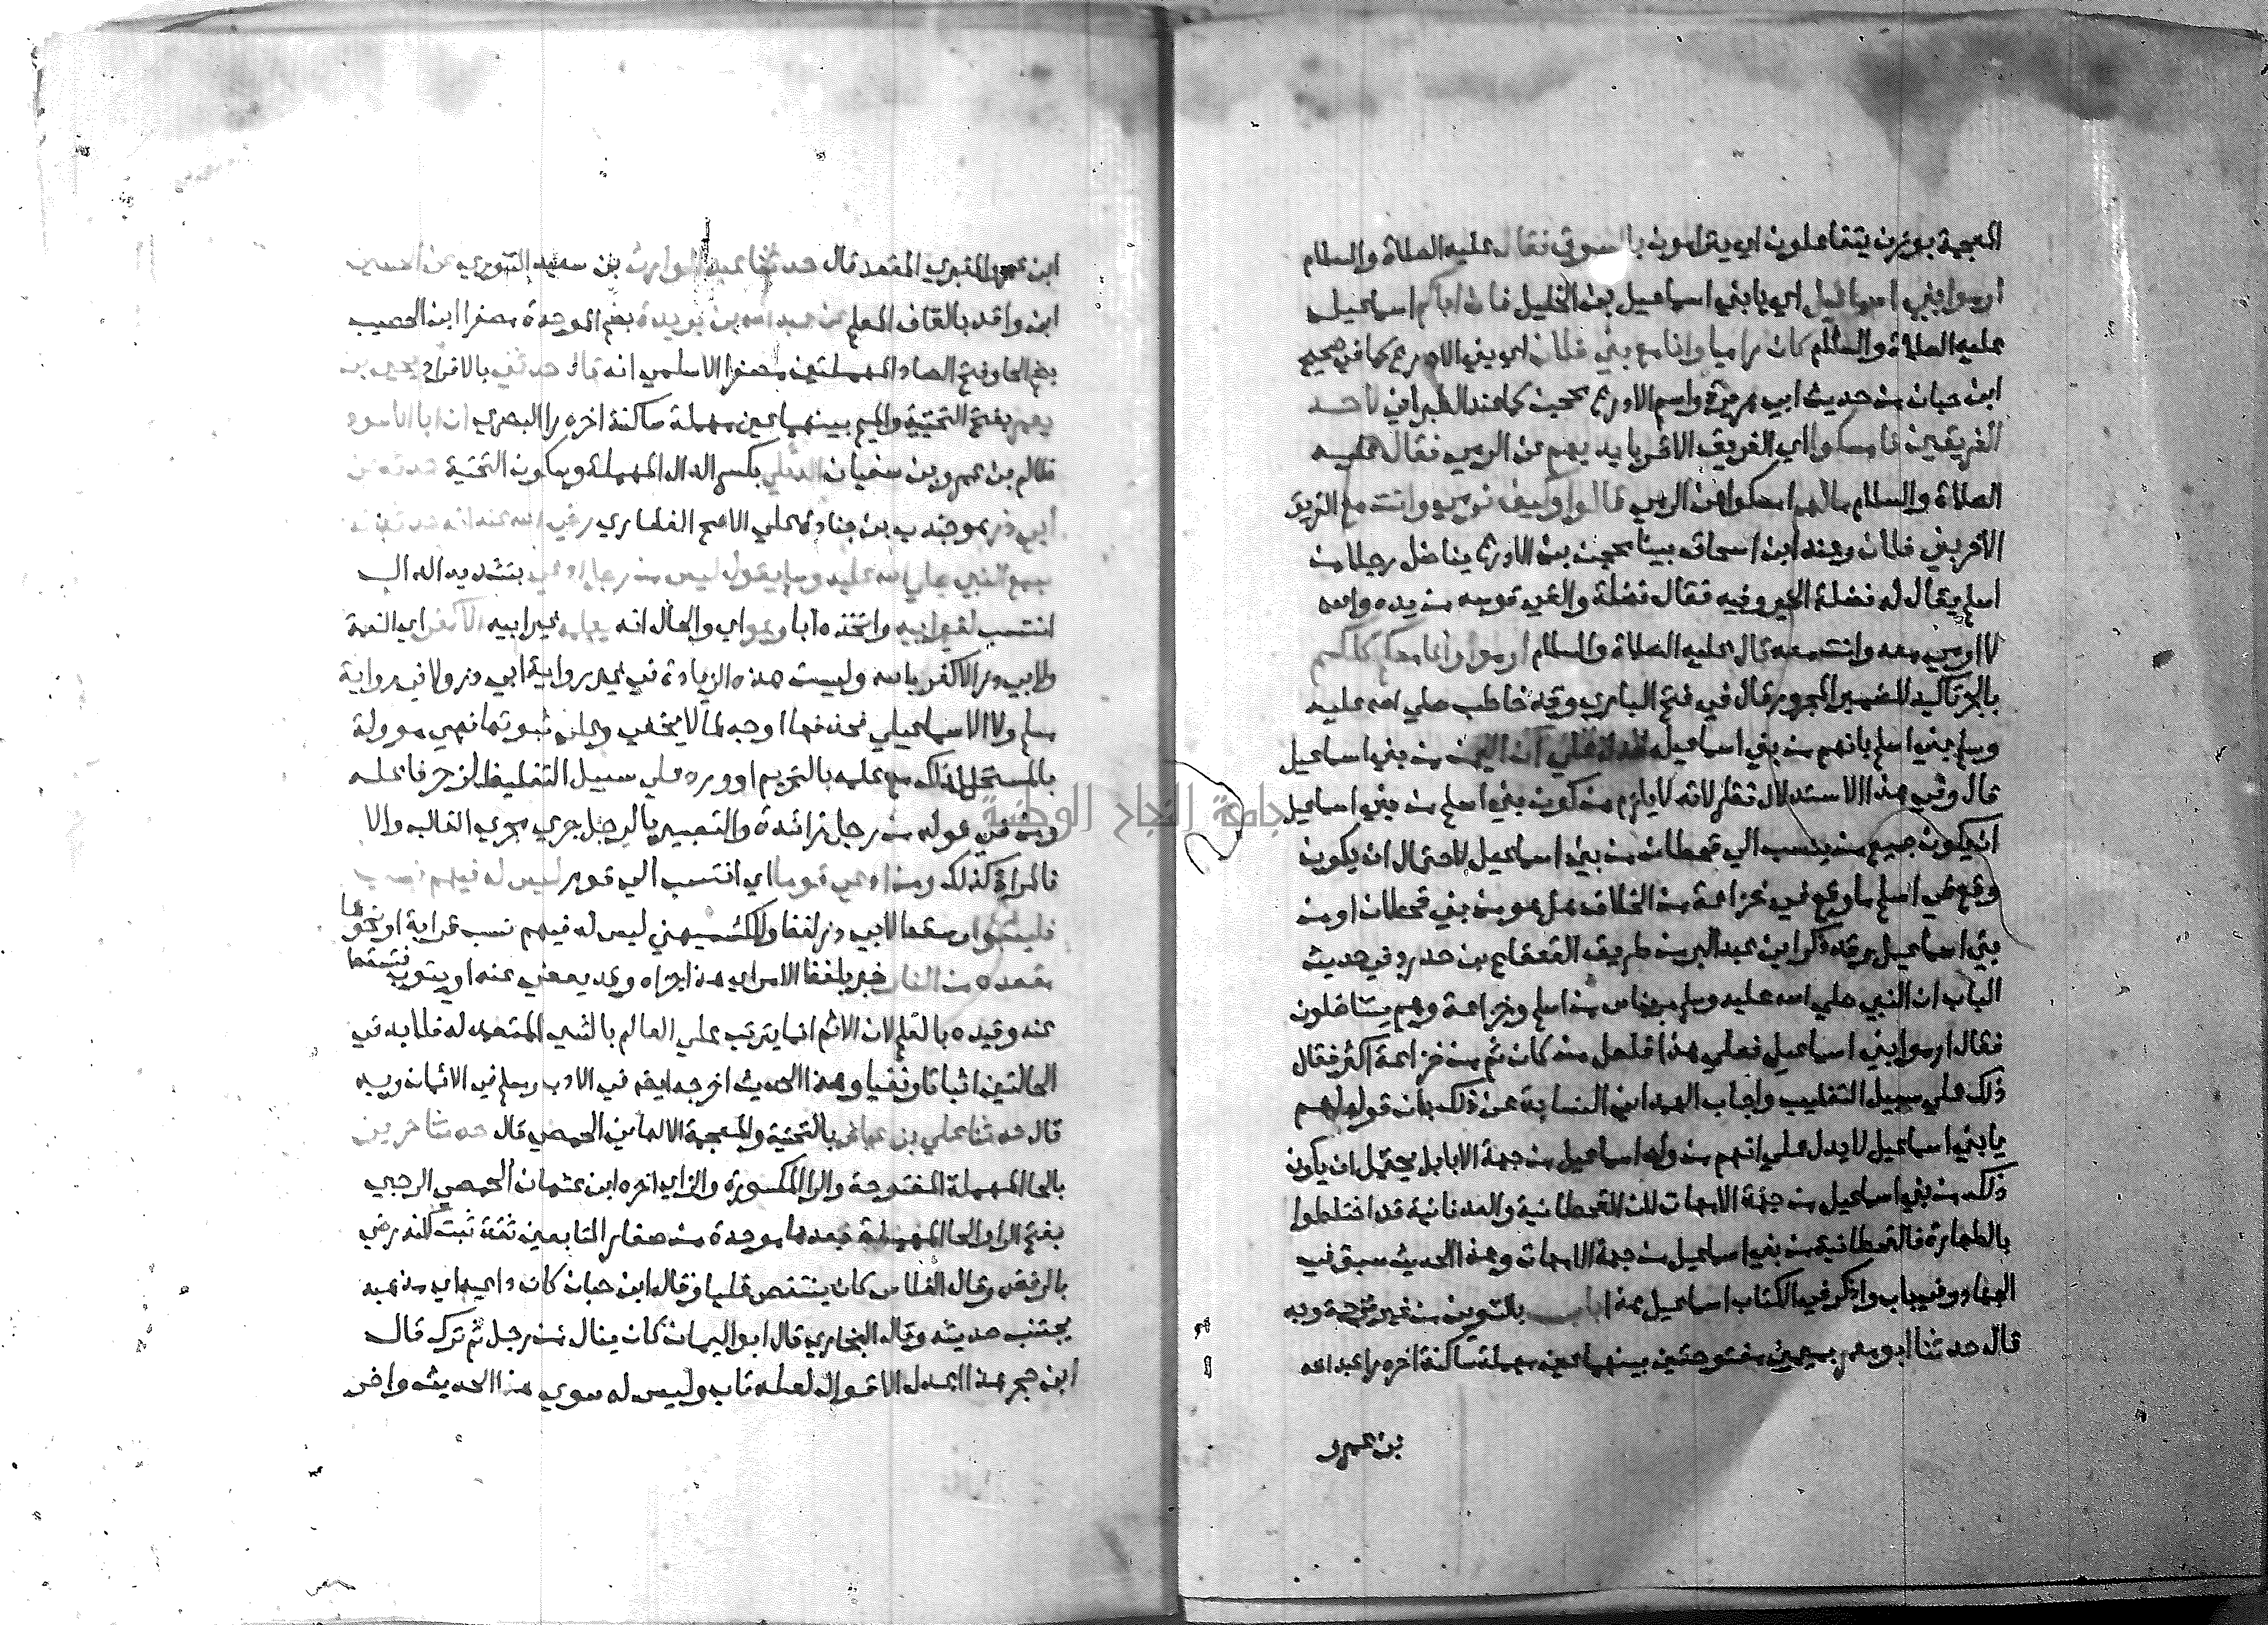 المعجمة بوزن يتفاعلون اي يترامون بالسوق فقال عليه الصلاة والسلام
ارموا بني اسماعيل اي يا بني اسماعيل بن الخليل فان اباكم اسماعيل
عليه الصلاة والسلام كان راميا وانا مع بني فلان اي بني الادرع كما في صحيح
ابن حبان من حديث ابي هريرة واسم الادرع محجن كما عند الطبراني لاحد
الفريقين فامسكوا اي الفريق الاخر بايديهم عن الرمي فقال عليه
الصلاة والسلام مالهم امسكوا عن الرمي قالوا وكيف نرمي وانت مع الفريق
الاخر بني فلان وعند ابن اسحاق بينا محجن بن الادرع يناضل رجلا من
اسلم يقال له نضلة الخبر وفيه فقال نضلة والقي قوسه من يده والله
لا ارمي معه وانت معه قال عليه الصلاة والسلام ارموا وانا معكم كلكم
بالجر تاكيد للضمير المجرور قال في فتح الباري وقد خاطب صلي الله عليه
وسلم بني اسلم بانهم من بني اسماعيل فدل علي ان اليمن من بني اسماعيل
قال وفي هذا الاستدلال نظر لانه لا يلزم من كون بني اسلم من بني اسماعيل
ان يكون جميع من ينسب الي قحطان من بني اسماعيل لاحتمال ان يكون
وقع في اسلم ما وقع في خزاعة من الخلاف هل هو من بني قحطان او من
بني اسماعيل وقد ذكر ابن عبد البر من طريق القعقاع بن حدرد في حديث
الباب ان النبي صلي الله عليه وسلم مر بناس من اسلم وخزاعة وهم يتناضلون
فقال ارموا بني اسماعيل فعلي هذا فلعل من كان ثم من خزاعة اكثر فقال
ذلك علي سبيل التغليب واجاب الهمداني النسابة عن ذلك بان قوله لهم
يا بني اسماعيل لا يدل علي انهم من ولد اسماعيل من جهة الابا بل يحتمل ان يكون
ذلك من بني اسماعيل من جهة الامهات لان القحطانية والعدنانية قد اختلطوا
بالطهارة فالقحطانية من بني اسماعيل من جهة الامهات وهذا الحديث سبق في
الجهاد وفي باب واذكر في الكتاب اسماعيل هذا باب بالتنوين من غير ترجمة وبه
قال حدثنا ابو معمر بميمين مفتوحتين بينهما عين مهملة ساكنة اخره را عبد الله
بن عمرو
ابن عمرو المنقري المقعد قال حدثنا عبد الوارث بن سعيد التنوري عن الحسين
ابن واقد بالقاف المعلم عن عبد الله بن بريدة بضم الموحدة مصغرا ابن الحصيب
بضم الحا وفتح الصاد المهملتين مصغرا الاسلمي انه قال حدثني بالافراد يحيى بن
يعمر بفتح التحتية والميم بينهما عين مهملة ساكنة اخره را البصري ان ابا الاسود
ظالم بن عمرو بن سفيان الديلي بكسر الدال المهملة وسكون التحتية حدثه عن
ابي ذر هو جندب بن جنادة علي الاصح الغفاري رضي الله عنه انه
سمع النبي صلي الله عليه وسلم يقول ليس من رجل ادعي بتشديد الدال
انتسب لغير ابيه واتخذه ابا وهو اي والحال انه يعلمه غير ابيه الا كفر اي النعمة
ولابي ذر الا كفر بالله وليست هذه الزيادة في غير رواية ابي ذر ولا في رواية
مسلم ولا الاسماعيلي فحذفها اوجه لما لا يخفي وعلي ثبوتها فهي موولة
بالمستحل لذلك مع علمه بالتحريم او ورد علي سبيل التغليظ لزجر فاعله
ومن في قوله من رجل زائدة والتعبير بالرجل جري مجري الغالب والا
فالمراة كذلك ومن ادعي قوما اي انتسب الي قوم ليس له فيهم نسب
وسقط لابي ذر لفظ وللكشميهني ليس له فيهم نسب قرابة او نحوها
فليتبوا
مقعده من النار خبر بلفظ الامر اي هذا جزاه وقد يعفي عنه او يتوب
عنه وقيده بالعلم لان الاثم انما يترتب علي العالم بالشي المتعمد له فلا بد في
الحالتين اثباتا ونفيا وهذا الحديث اخرجه ايضا في الادب ومسلم في الايمان وبه
قال حدثنا علي بن عياش بالتحتية والمعجمة الالهاني الحمصي قال حدثنا حريز
بالحا المهملة المفتوحة والرا المكسورة والزاي اخره ابن عثمان الحمصي الرحبي
بفتح الرا والحا المهملة بعدها موحدة من صغار التابعين ثقة ثبت لكنه رمي
بالرفض وقال الفلاس كان ينتقص عليا وقال ابن حبان كان داعيا الي مذهبه
يجتنب حديثه وقال البخاري قال ابو اليمان كان ينال من رجل ثم ترك قال
ابن حجر هذا اعدل الاقوال لعله تاب وليس له سوي هذا الحديث واخر
جامعة النجاح الوطنية